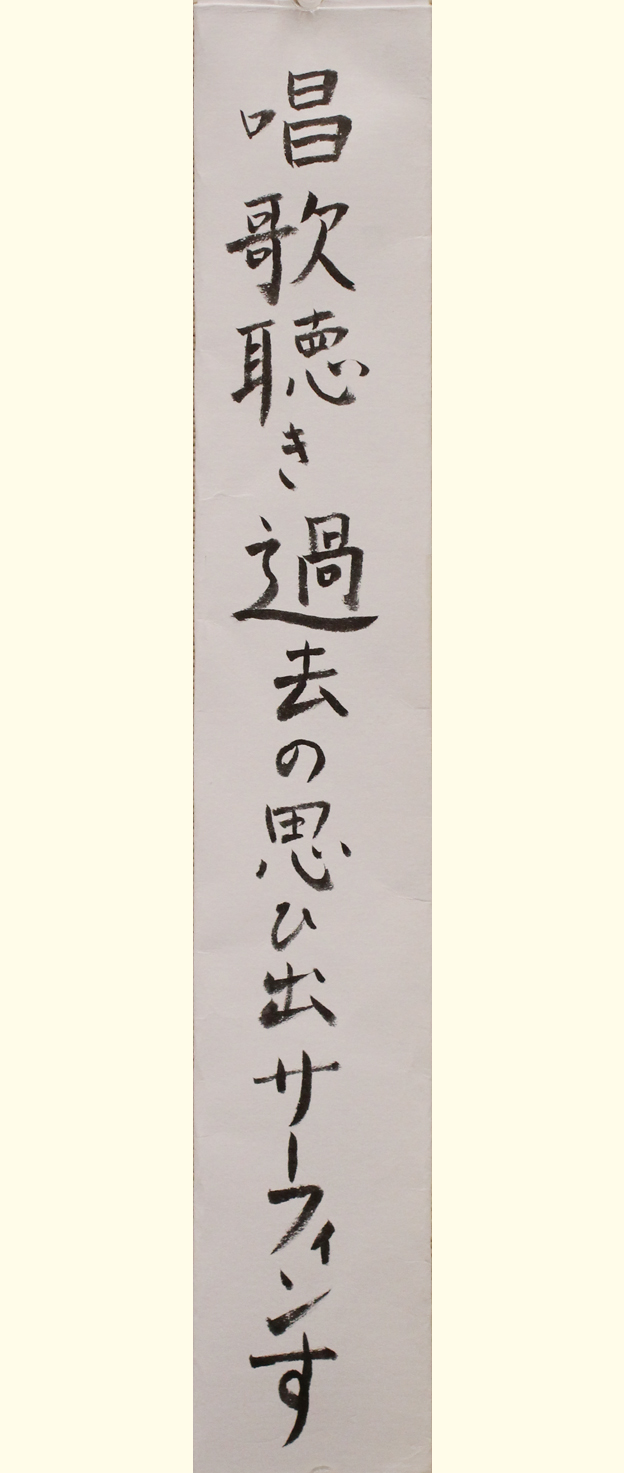 唱歌聴き過去の思ひ出サーフィンす